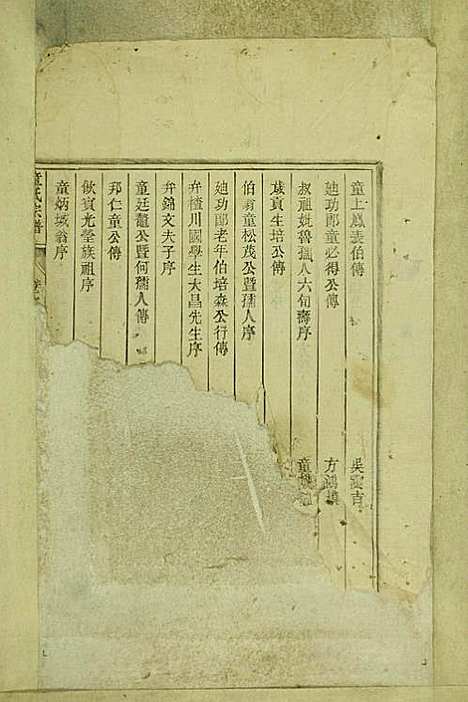 童上鳳表伯傳 吳 吉
迪功郎童必得公傳 方鴻
叔祖妣魯孺人六旬壽序 童
歲貢生培公傳
伯翁童松茂公暨孺人序
迪功郎老年伯培森公行傳
弁植川國學生大昌先生序
弁錦文夫子序
童廷龍公暨何孺人傳
邦仁童公傳
飲賓光瑩族祖序
童炳域翁序
童氏宗譜 卷